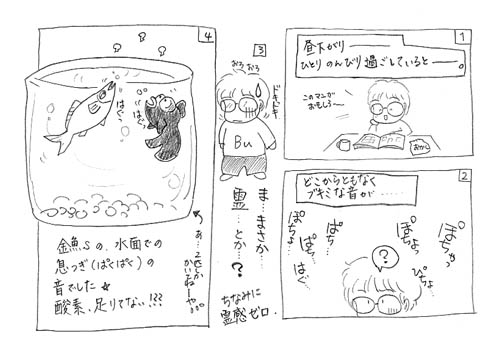 1
昼下がり―――
ひとり のんびり過ごしていると――。
このマンガ
おもしろ〜
おかし
2
どこからともなく
ブキミな音が……
ぽちゃっ
ぴちょ
ぽちょ
ぱち
ぱち
はぐ
ぽちょ
?
3
おろ
おろ
ドキドキ
Bu
ま…まさか
霊…とか…?
ちなみに
霊感ゼロ.
4
はぐっ
はぐっ
金魚sの、水面での
息つぎ(ぱくぱく)の
音でした☆
酸素、足りてない!!?
あ…2匹しか
かいてねーや…